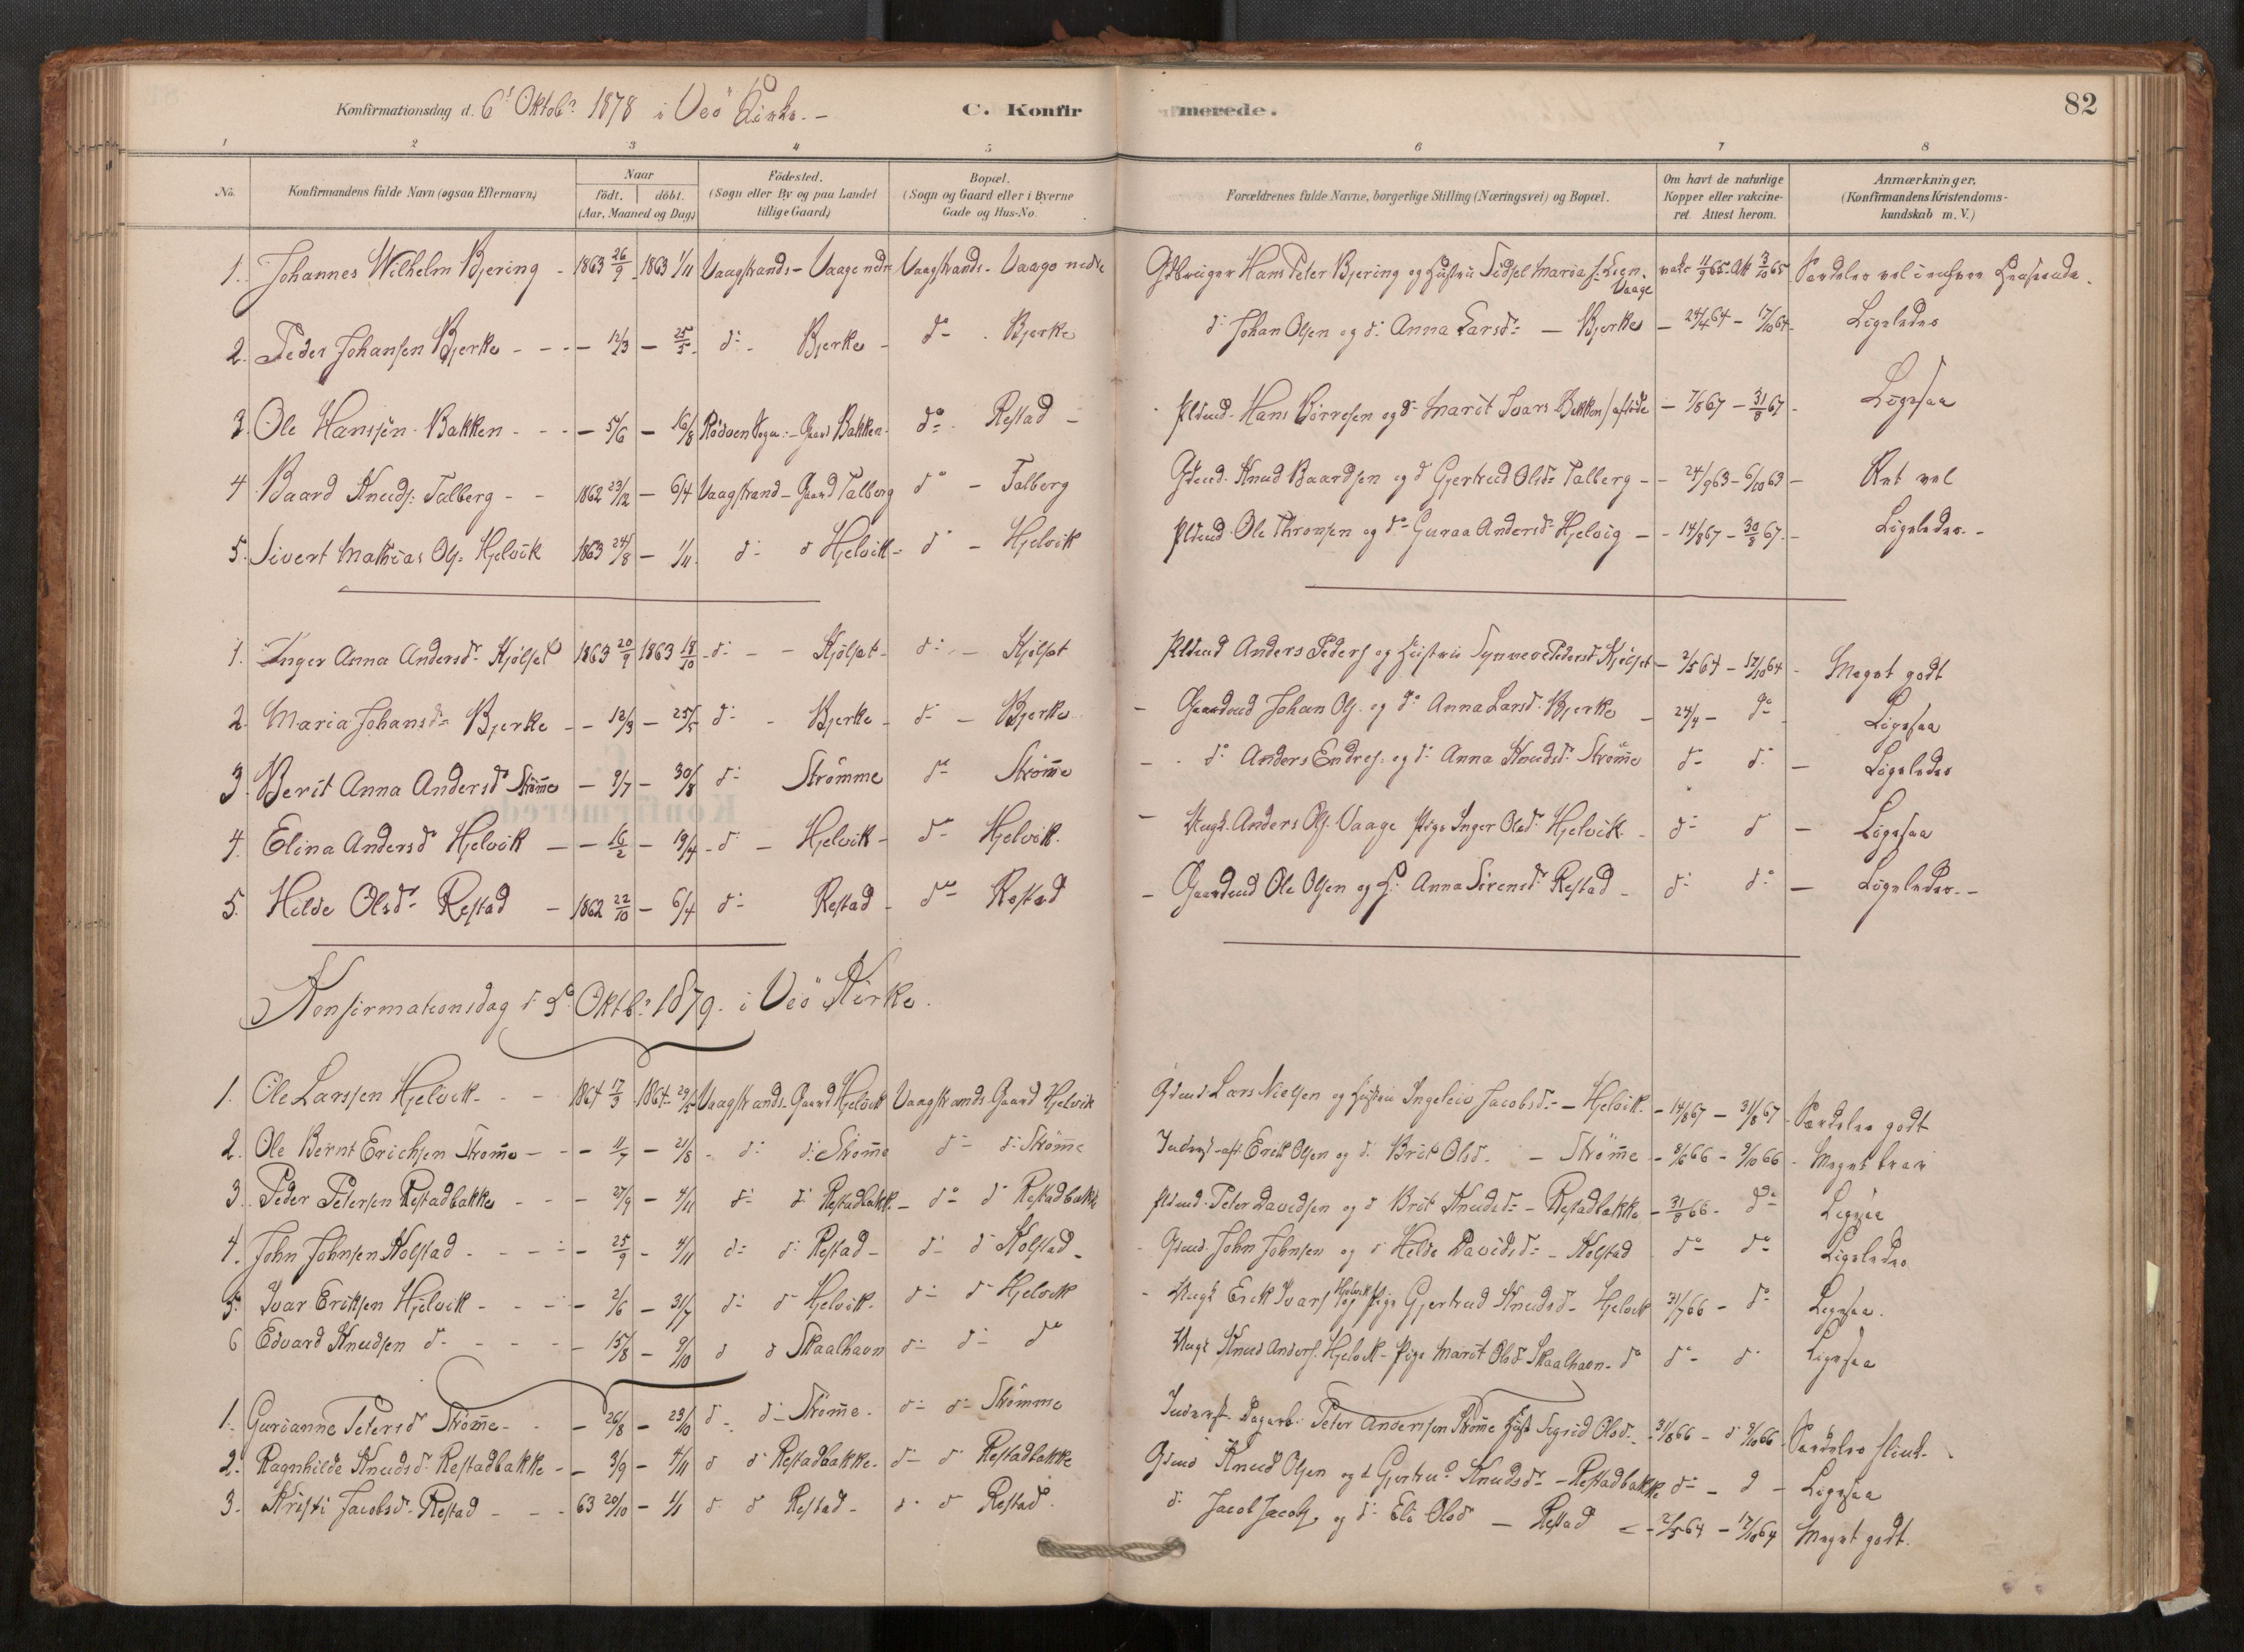 Konfirmationsdag d. 6t Oktobr 1878 i Veö Kirke. –
C. Konfirmerede.
82
1 2 3 4 5 6 7 8
No. Konfirmandens fulde Navn (ogsaa Efternavn) Naar födt. döbt. (Aar, Maaned og Dag) Födested. (Sogn eller By og paa Landet tillige Gaard) Bopæl. (Sogn og Gaard eller i Byerne Gade og Hus-No. Forældrenes fulde Navne, borgerlige Stilling (Næringsvei) og Bopæl. Om havt de naturlige Kopper eller vakcineret. Attest herom. Anmærkninger. (Konfirmandens Kristendomskundskab m. V.)
1. Johannes Wilhelm Bjering - 1863 26/9 - 1863 1/11 Vaagstrands - Vaage nedre Vaagstrands - Vaage nedre Gdbruger Hans Peter Bjering og Hustru Sidsel Maria Vaage vakc 11/9 65. Att 3/10 65
2. Peder Johansen Bjerke - - - 12/3 - 25/5 d: - Bjerke - do - Bjerke d: Johan Olsen og d: Anna Larsd: - Bjerke - 24/4 64 - 17/10 64 - Ligeledes
3. Ole Hanssen Bakken - - - 5/6 - 16/8 Rödven Sogn - Gaard Bakken do - Restad - Plmd. Hans og d: Marit Ivars Bakken - 7/8 67 - 31/8 67 - Ligesaa
4 Baard Knuds: Talberg - - 1862 23/12 - 6/4 Vaagstrand - Gaard Talberg do - Talberg Gdmd. Knud Baardsen og d Gjertrud Olsd: Talberg - - 24/9 63 - 6/10 63 - Ret vel
5. Sivert Mathias Ols: Hjelvik 1863 24/8 - 1/11 d: d Hjelvik - d: - Hjelvik Plmd. Ole Thronsen og do Guraa Andersd: Hjelvig - - 14/8 67 - 30/8 67. - Ligeledes. -
1. Inger Anna Andersd: Kjölset 1863 20/9 1863 18/10 - d: - - Kjölset - d: - Kjölset Plmd Anders Peders og Hustru Synneve Pedersd Kjölset - 2/5 64 - 17/10 64 - Meget godt
2. Maria Johansd: Bjerke - - 12/3 - 25/5 d: - Bjerke - d: - Bjerke - Gaardmd Johan Ols. og do Anna Larsd: Bjerke - 24/4 - do - Ligesaa
3. Berit Anna Andersd Ströme - 9/7 - 30/8 d: Strömme do Ströme - d: Anders Endres. og d: Anna Knudsd: Ströme d: d: - Ligeledes
4. Elina Andersd Hjelvik - - 16/2 - 19/4 - d - Hjelvik - do Hjelvik. - Ungk. Anders Ols. Vaage Pige Inger Olsd: Hjelvik - d: d - Ligesaa
5. Hilde Olsd: Restad - 1862 22/10 - 6/4 d: Restad - do Restad - Gaardmd Ole Olsen og H: Anna Sivensd: Restad - d: d: - Ligeledes. -
Konfirmationsdag d 5: Oktbr 1879. i Veö Kirke.
1. Ole Larssen Hjelvik - - 1864 17/3 1864 29/5 Vaagstrands - Gaard Hjelvik Vaagstrands Gaard Hjelvik Gdmd. Lars Nielsen og Hustru Ingeleiv Jacobsd: - Hjelvik - 14/8 67 - 31/8 67 - Særdeles godt
2. Ole Bernt Erichsen Ströme - - - 11/7 - 21/8 - d: d: Ströme d: d: Ströme Erik Olsen og d: Brit Olsd. - Ströme - 8/6 66 - 9/10 66 - Meget brav
3. Peder Petersen Restadbakke - - - 27/9 - 4/11 d: d: Restadbakk. - do d: Restadbakk Plmd. Peter Davidsen og d Brit Knudsd: - Restadbakke - 31/8 66 - do Ligesaa
4. John Johnsen Kolstad - - - - 25/9 - 4/11 d: d: Restad - d: d Kolstad - Gdmd. John Johnsen og d Helde Davidsd: - Kolstad - do do Ligeledes
5. Ivar Eriksen Hjelvik - - - - 2/6 - 31/7 d: d Hjelvik. d: d Hjelvik - Ungk Erik Ivars Hjelvik og Pige Gjertrud Knudsd - Hjelvik 31/7 66 - do Ligesaa.
6 Edvard Knudsen d: - - - - 15/8 - 9/10 d d Skaalhavn d: d: do Ungk Knud Anders. Hjelvik - Pige Marit Olsd Skaalhavn - do do - d: Ligesaa
1. Gurianne Petersd Ströme - - - 26/8 - 23/10 d - d: Ströme. d: d: Strömme Dagarb. Peter Andersen Ströme Hust Sigrid Olsd. - 31/8 66 - d 9/10 66 Særdeles flink.
2. Ragnhilde Knudsd: Restadbakke - - 3/9 - 4/11 d d Restadbakke. d: d Restadbakke Gdmd Knud Olsen og d Gjertrud Knudsd: - Restadbakke d: - d - Ligesaa
3. Kristi Jacobsd. Restad - - - 63 20/10 - 1/1 d d Restad - d: d Restad. d: Jacob Jacobs. og d: Eli Olsd - Restad - 2/5 64 - 17/10 64 Meget godt.